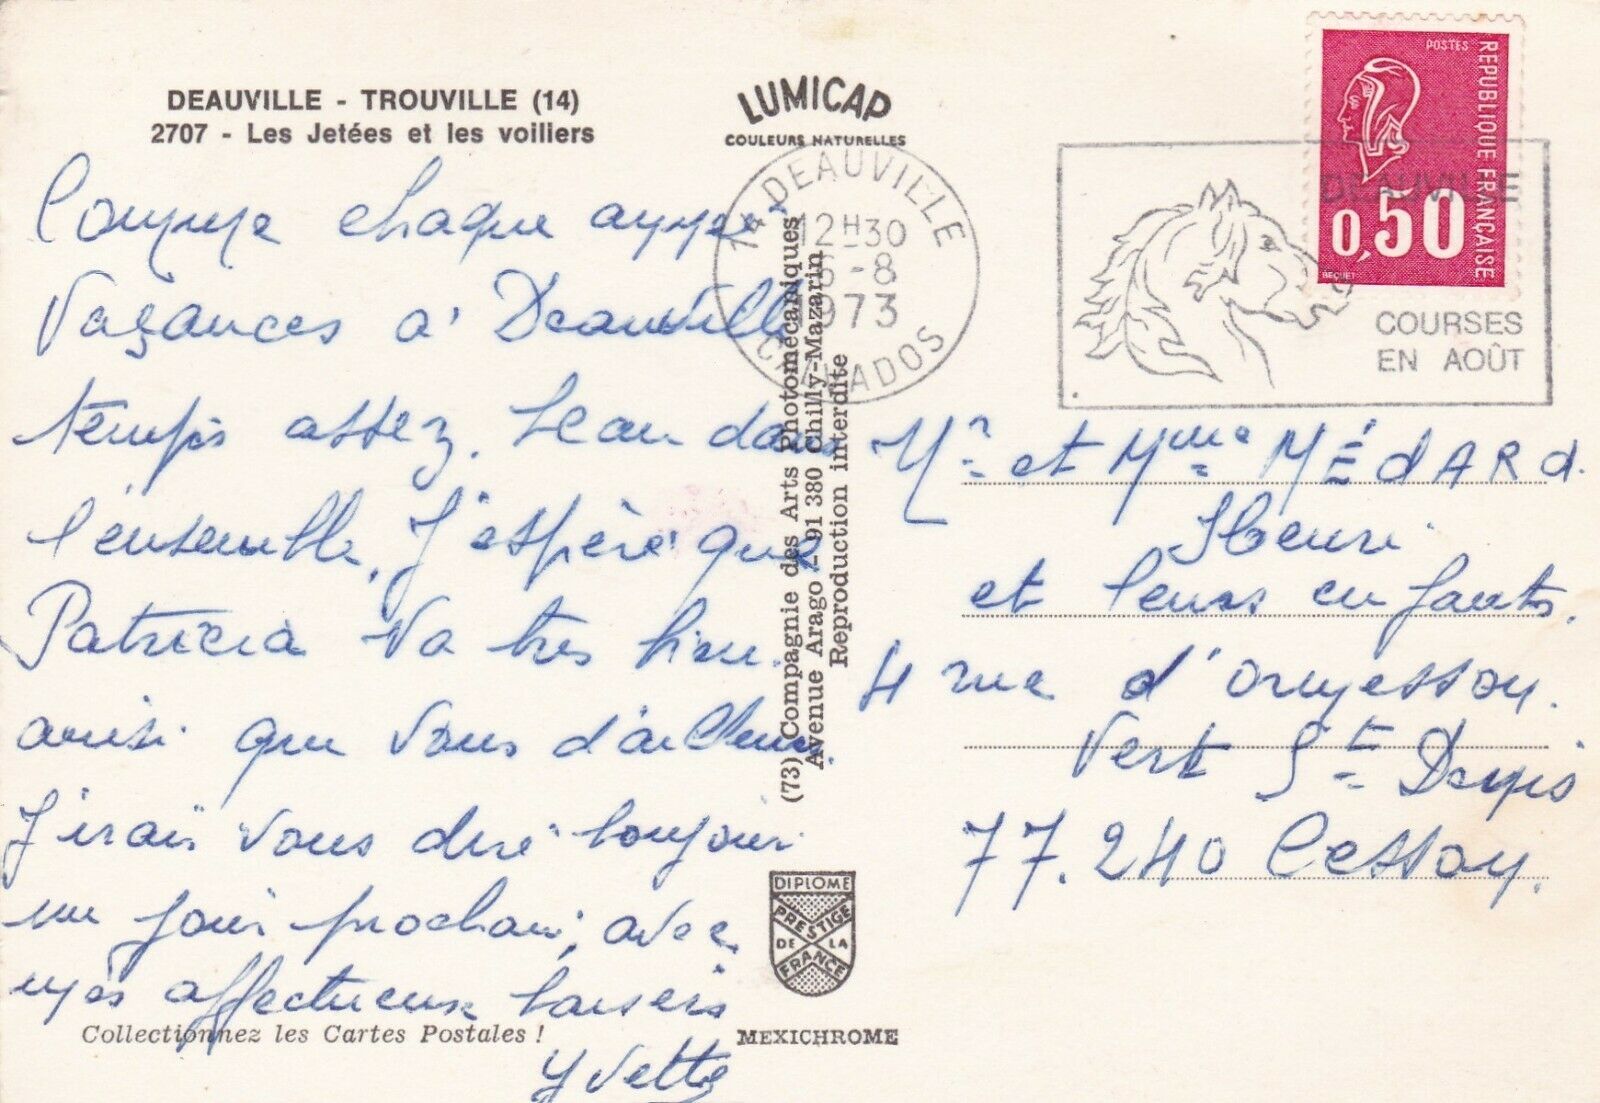 DEAUVILLE - TROUVILLE (14)
2707 - Les Jetées et les voiliers
LUMICAP
COULEURS NATURELLES
14 DEAUVILLE
12H30
6-8
1973
CALVADOS
DEAUVILLE
COURSES
EN AOÛT
POSTES
REPUBLIQUE FRANÇAISE
0,50
BEQUET
Comme chaque année
Vacances à Deauville
temps assez beau dans
l'ensemble, J'espère que
Patricia va très bien.
ainsi que vous d'ailleurs.
J'irais vous dire bonjour
un jour prochain, avec
mes affectueux baisers
Yvette
Mr et Mme MÉdARd.
Henri
et leurs enfants.
4 rue d'ormesson.
Vert St Denis
77.240 Cesson.
(73) Compagnie des Arts Photomécaniques
Avenue Arago - 91 380 Chilly-Mazarin
Reproduction interdite
DIPLOME
PRESTIGE
DE LA
FRANCE
Collectionnez les Cartes Postales !
MEXICHROME